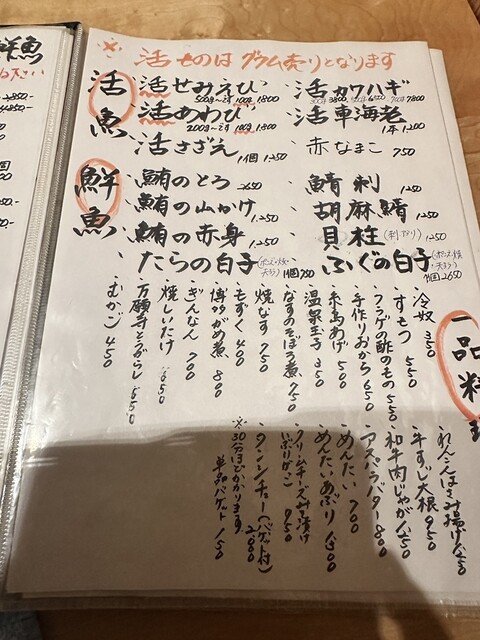 ※活ものはグラム売りとなります
活魚
活せみえび
500g〜です 100g 1800
活あわび
200g〜です 100g 1800
活さざえ 1個 1250
活カワハギ
活車海老
1本 1200
赤なまこ 750
鮮魚
鮪のとろ 2650
鮪の山かけ 1250
鮪の赤身 1250
たらの白子 1個 750
鯖刺 1250
胡麻鯖 1250
貝柱 (刺、バタ) 1250
ふぐの白子 1個 2650
一品料理
冷奴 350
すもつ 550
フグ皮の酢のもの 550
手作りおから 650
糸島あげ 500
温泉玉子 350
なすのそぼろ煮 750
焼なす 750
もずく 400
博多がめ煮 800
ぎんなん 700
焼しいたけ 650
万願寺とうがらし 650
むかご 450
れんこんはさみ揚げ 1250
牛すじ大根 950
和牛肉じゃが 1250
アスパラバター 800
めんたい 700
めんたいあぶり 1300
クリームチーズみそ漬け
いぶりがっこ 950
タンシチュー(バゲット付) 2000
※30分ほどかかります
単品バゲット 150
鮮魚